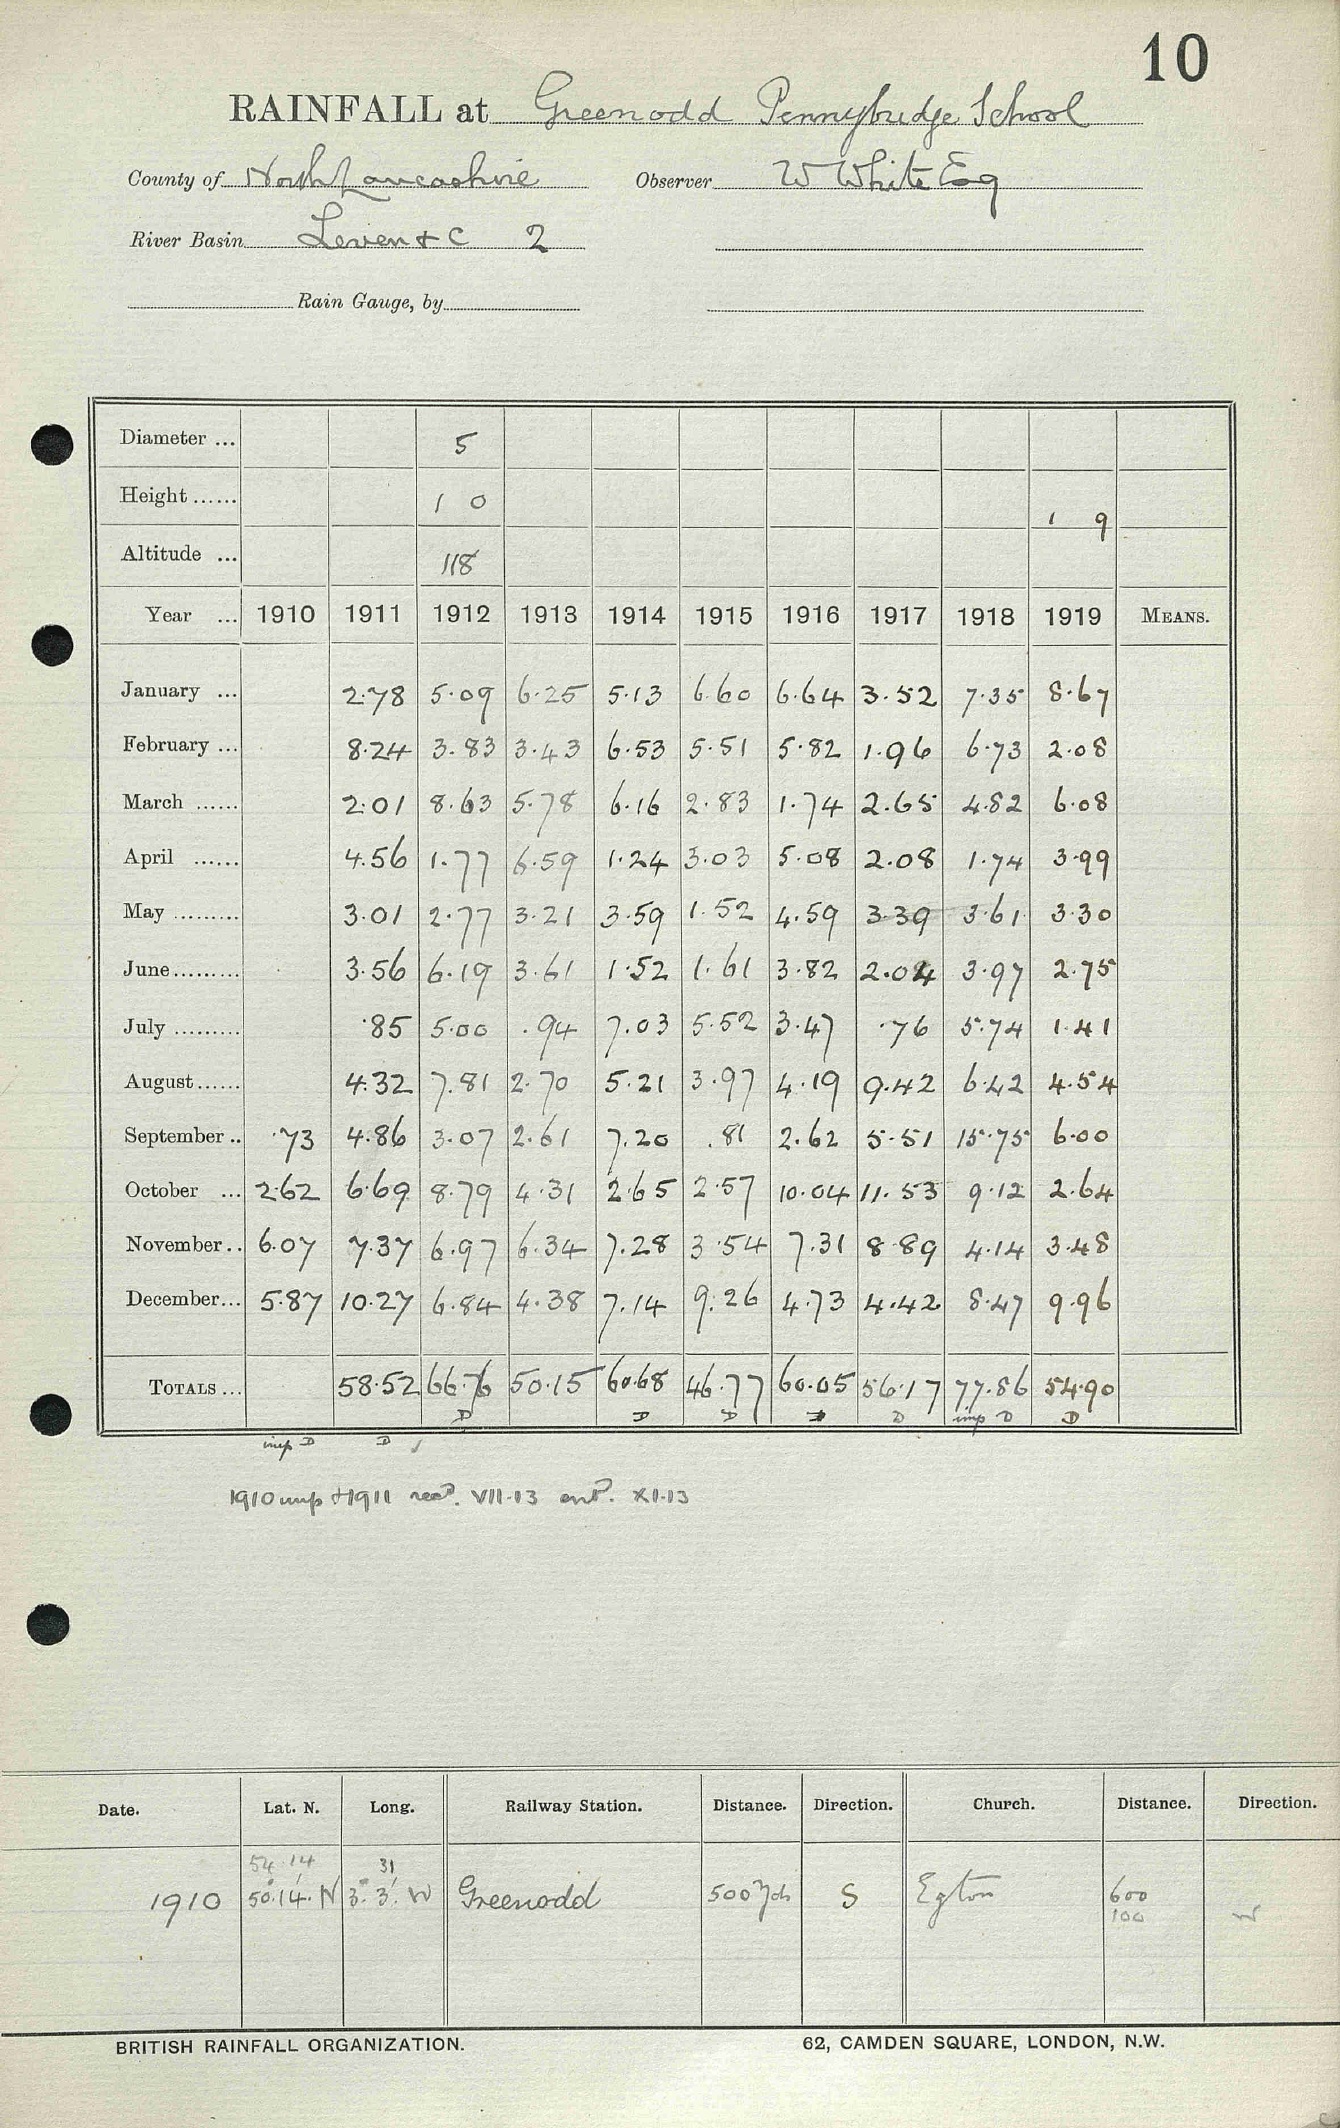 10
RAINFALL at Greenodd Pennybridge School
County of North Lancashire Observer W White Esq
River Basin Leven & C 2
Rain Gauge, by
Diameter ... 5
Height ...... 1 0 1 9
Altitude ... 118
Year ... 1910 1911 1912 1913 1914 1915 1916 1917 1918 1919 MEANS.
January ... 2.78 5.09 6.25 5.13 6.60 6.64 3.52 7.35 8.67
February ... 8.24 3.83 3.43 6.53 5.51 5.82 1.96 6.73 2.08
March ...... 2.01 8.63 5.78 6.16 2.83 1.74 2.65 4.82 6.08
April ...... 4.56 1.77 6.59 1.24 3.03 5.08 2.08 1.74 3.99
May ......... 3.01 2.77 3.21 3.59 1.52 4.59 3.39 3.61 3.30
June......... 3.56 6.19 3.61 1.52 1.61 3.82 2.04 3.97 2.75
July ......... .85 5.00 .94 7.03 5.52 3.47 .76 5.74 1.41
August...... 4.32 7.81 2.70 5.21 3.97 4.19 9.42 6.42 4.54
September .. .73 4.86 3.07 2.61 7.20 .81 2.62 5.51 15.75 6.00
October ... 2.62 6.69 8.79 4.31 2.65 2.57 10.04 11.53 9.12 2.64
November .. 6.07 7.37 6.97 6.34 7.28 3.54 7.31 8.89 4.14 3.48
December... 5.87 10.27 6.84 4.38 7.14 9.26 4.73 4.42 8.47 9.96
TOTALS ... 58.52 66.76 50.15 60.68 46.77 60.05 56.17 77.86 54.90
D D D D D imp D D
imp D D
1910 imp & 1911 recd. VII.13 entd. XI.13
Date. Lat. N. Long. Railway Station. Distance. Direction. Church. Distance. Direction.
54 14 31
1910 50°14' N 3° 3' W Greenodd 500 yds S Egton 600
100 W
BRITISH RAINFALL ORGANIZATION. 62, CAMDEN SQUARE, LONDON, N.W.